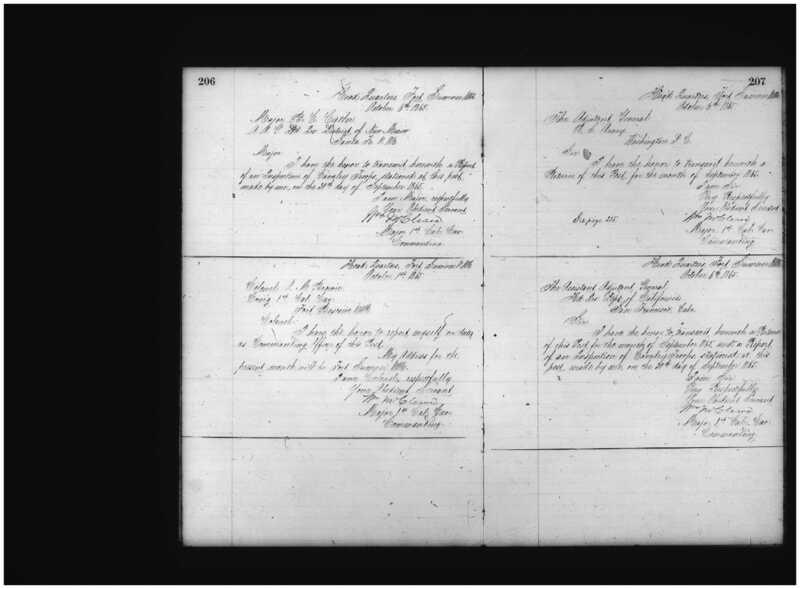 206
Head Quarters, Fort Sumner N.M.
October 5th 1865.
Major
District of New Mexico
Santa Fe N.M.
Major
I have the honor to transmit herewith a Report
of an Inspection of Cavalry Troops, stationed at this post,
made by me, on the 30th day of September 1865.
I am Major, respectfully
Your Obedient Servant
Wm McCleave
Major 1st Cal. Cav.
Commanding
Head Quarters, Fort Sumner N.M.
October 1st 1865.
Colonel
Comdg 1st Cal. Cav.
Fort N.M.
Colonel:
I have the honor to report myself on duty
as Commanding Officer of this Post.
My Address for the
present month will be Fort Sumner N.M.
I am Colonel, respectfully
Your Obedient Servant
Wm McCleave
Major 1st Cal. Cav.
Commanding
207
Head Quarters, Fort Sumner N.M.
October 5th 1865.
The Adjutant General
U. S. Army
Washington D. C.
Sir
I have the honor to transmit herewith a
Return of this Post, for the month of September 1865.
I am Sir
Very Respectfully
Your Obedient Servant
See page 225
Wm McCleave
Major 1st Cal. Cav.
Commanding
Head Quarters, Fort Sumner N.M.
October 5th 1865.
The Assistant Adjutant, General
Hd. Qrs. Dept. of California
San Francisco, Cala.
Sir
I have the honor to transmit herewith a Return
of this Post for the month of September 1865, and a Report
of an Inspection of Cavalry Troops, stationed at this
post, made by me, on the 30th day of September 1865.
I am Sir
Very Respectfully
Your Obedient Servant
Wm McCleave
Major 1st Cal. Cav.
Commanding